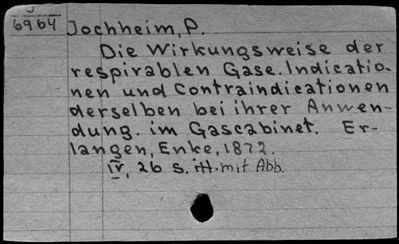 6964 Jochheim, P.
Die Wirkungsweise der
respirablen Gase. Indicatio-
nen und Contraindicationen
derselben bei ihrer Anwen-
dung. im Gascabinet. Er-
langen, Enke, 1872.
IV, 26 S. mit Abb.